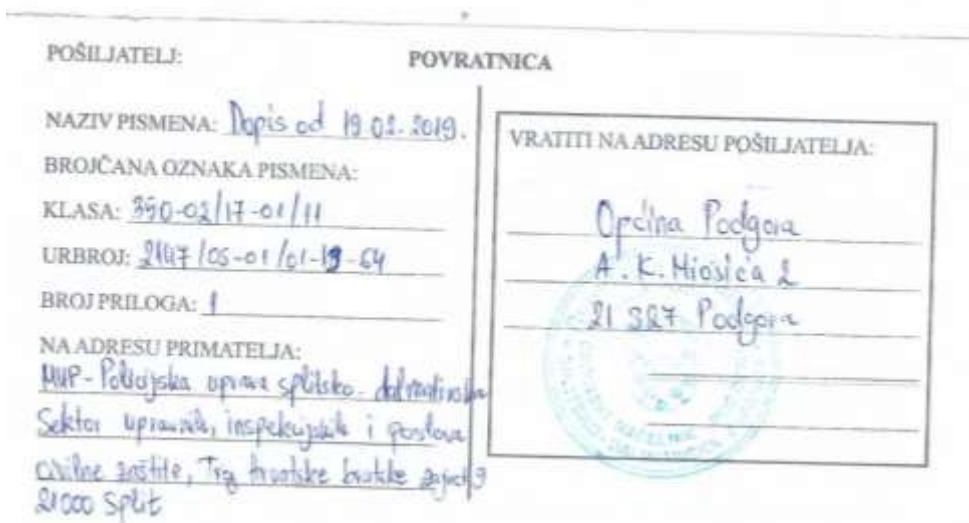 POŠILJATELJ:
POVRATNICA
NAZIV PISMENA: Dopis od 19.02.2019.
BROJČANA OZNAKA PISMENA:
KLASA: 350-02/17-01/11
URBROJ: 2147/05-01/01-19-64
BROJ PRILOGA: 1
NA ADRESU PRIMATELJA:
MUP-Policijska uprava splitsko-dalmatinska
Sektor upravnih, inspekcijskih i poslova
civilne zaštite, Trg hrvatske bratske zajed 9
21000 Split
VRATITI NA ADRESU POŠILJATELJA:
Općina Podgora
A. K. Miošića 2
21 327 Podgora
NAČELNIK